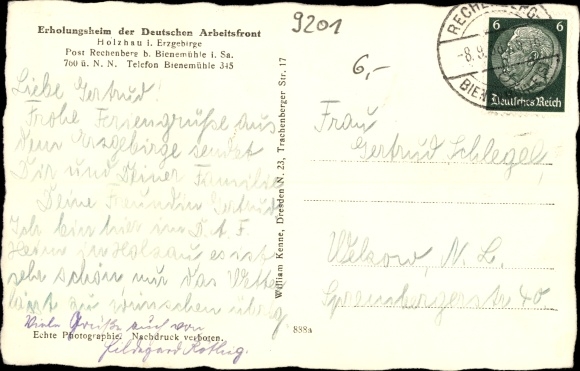 Erholungsheim der Deutschen Arbeitsfront
Holzhau i. Erzgebirge
Post Rechenberg b. Bienemühle i. Sa.
760 ü. N. N. Telefon Bienemühle 345
9201
6,-
RECHENBERG-
-8.9.
BIEN
6 6
Deutsches Reich
Liebe Gertrud!
Frohe Feriengrüße aus
dem Erzgebirge sendet
Dir und Deiner Familie
Deine Freundin Gertrud
Ich bin hier im D.A.F.
Heim in Holzhau es ist
sehr schön nur das Wetter
lässt zu wünschen übrig
Viele Grüße auch von
Hildegard
Echte Photographie. Nachdruck verboten.
William Kenne, Dresden N. 23, Trachenberger Str. 17
888a
Frau
Gertrud Schlegel,
Welzow, N. L.
Sprembergerstr 40